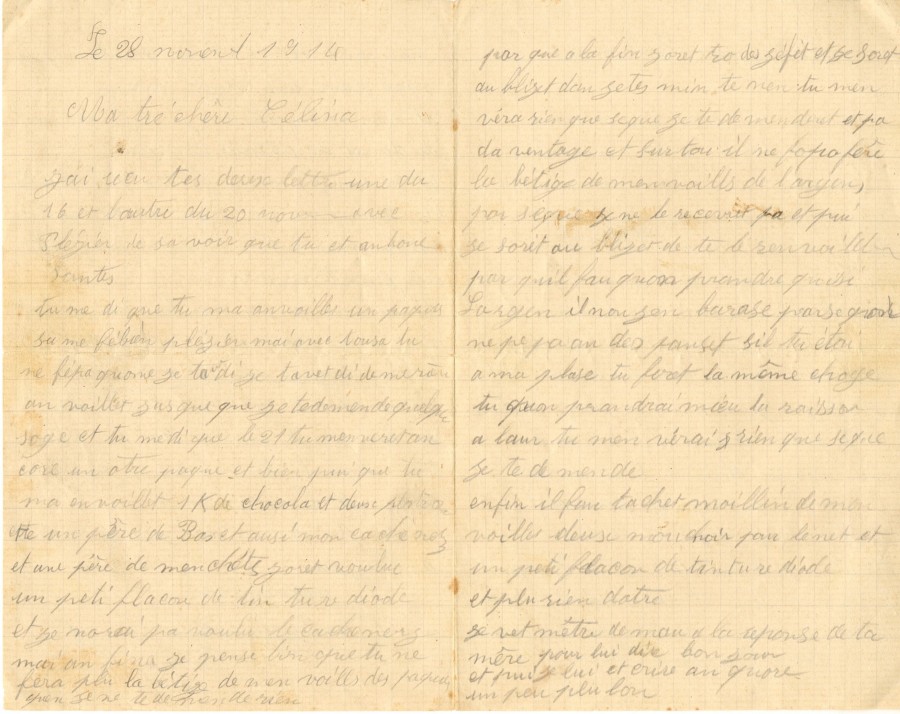 Le 28 novent 1914
Ma tré chêre Célina
jai reçu tes deuse lettre une du
16 et lautre du 20 novem avec
plézier de sa voir que tu et an bone
santes
tu me di que tu ma anvoilles un paques
sa me fé bien plézier mai avec tousa tu
ne fépa quome je di je tavet di de me rien
an voillet jusque que je te demende quelque
soge et tu me di que le 21 tu menveret an
core un otre paque et bien pui que tu
ma envoillet 1 K di chocola et deuse
un père de Bas et ausi mon cachenez
et une père de menchête joret voulu
un peti flacon de tin ture diode
et je norai pa voulu le cachenez
mai an fin je pense bien que tu ne
fera plu la bétize de men voille des paques
quan je ne te demende rien
par que a la fin joret tro des éfèt et je soret
au blizet dan jetes min te nen tu men
véra rien que seque je te demenderet et pa
da ventage et surtou il ne fopa fére
la bétize de men voille de largens
par seque je ne le recevret pa et pui
je sorit au blizet de te le renvoille
par quil fau quon prandre quoisi
Largen il nou zen barase parsequon
ne pe pa an des panset sit tu étai
a ma plase tu feret la même choze
tu quon prandrai mieu la raisson
a laur tu men vérais rien que seque
je te demende
enfin il fau tachet moillin de man
voilles deuse mouchoir pour le net et
un peti flacon de tinture diode
et plu rien dotre
je vet mêtre de mau a la reponse de ta
mère pour lui dire bon jour
et pui je lui et crire an quore
un peu plu lon